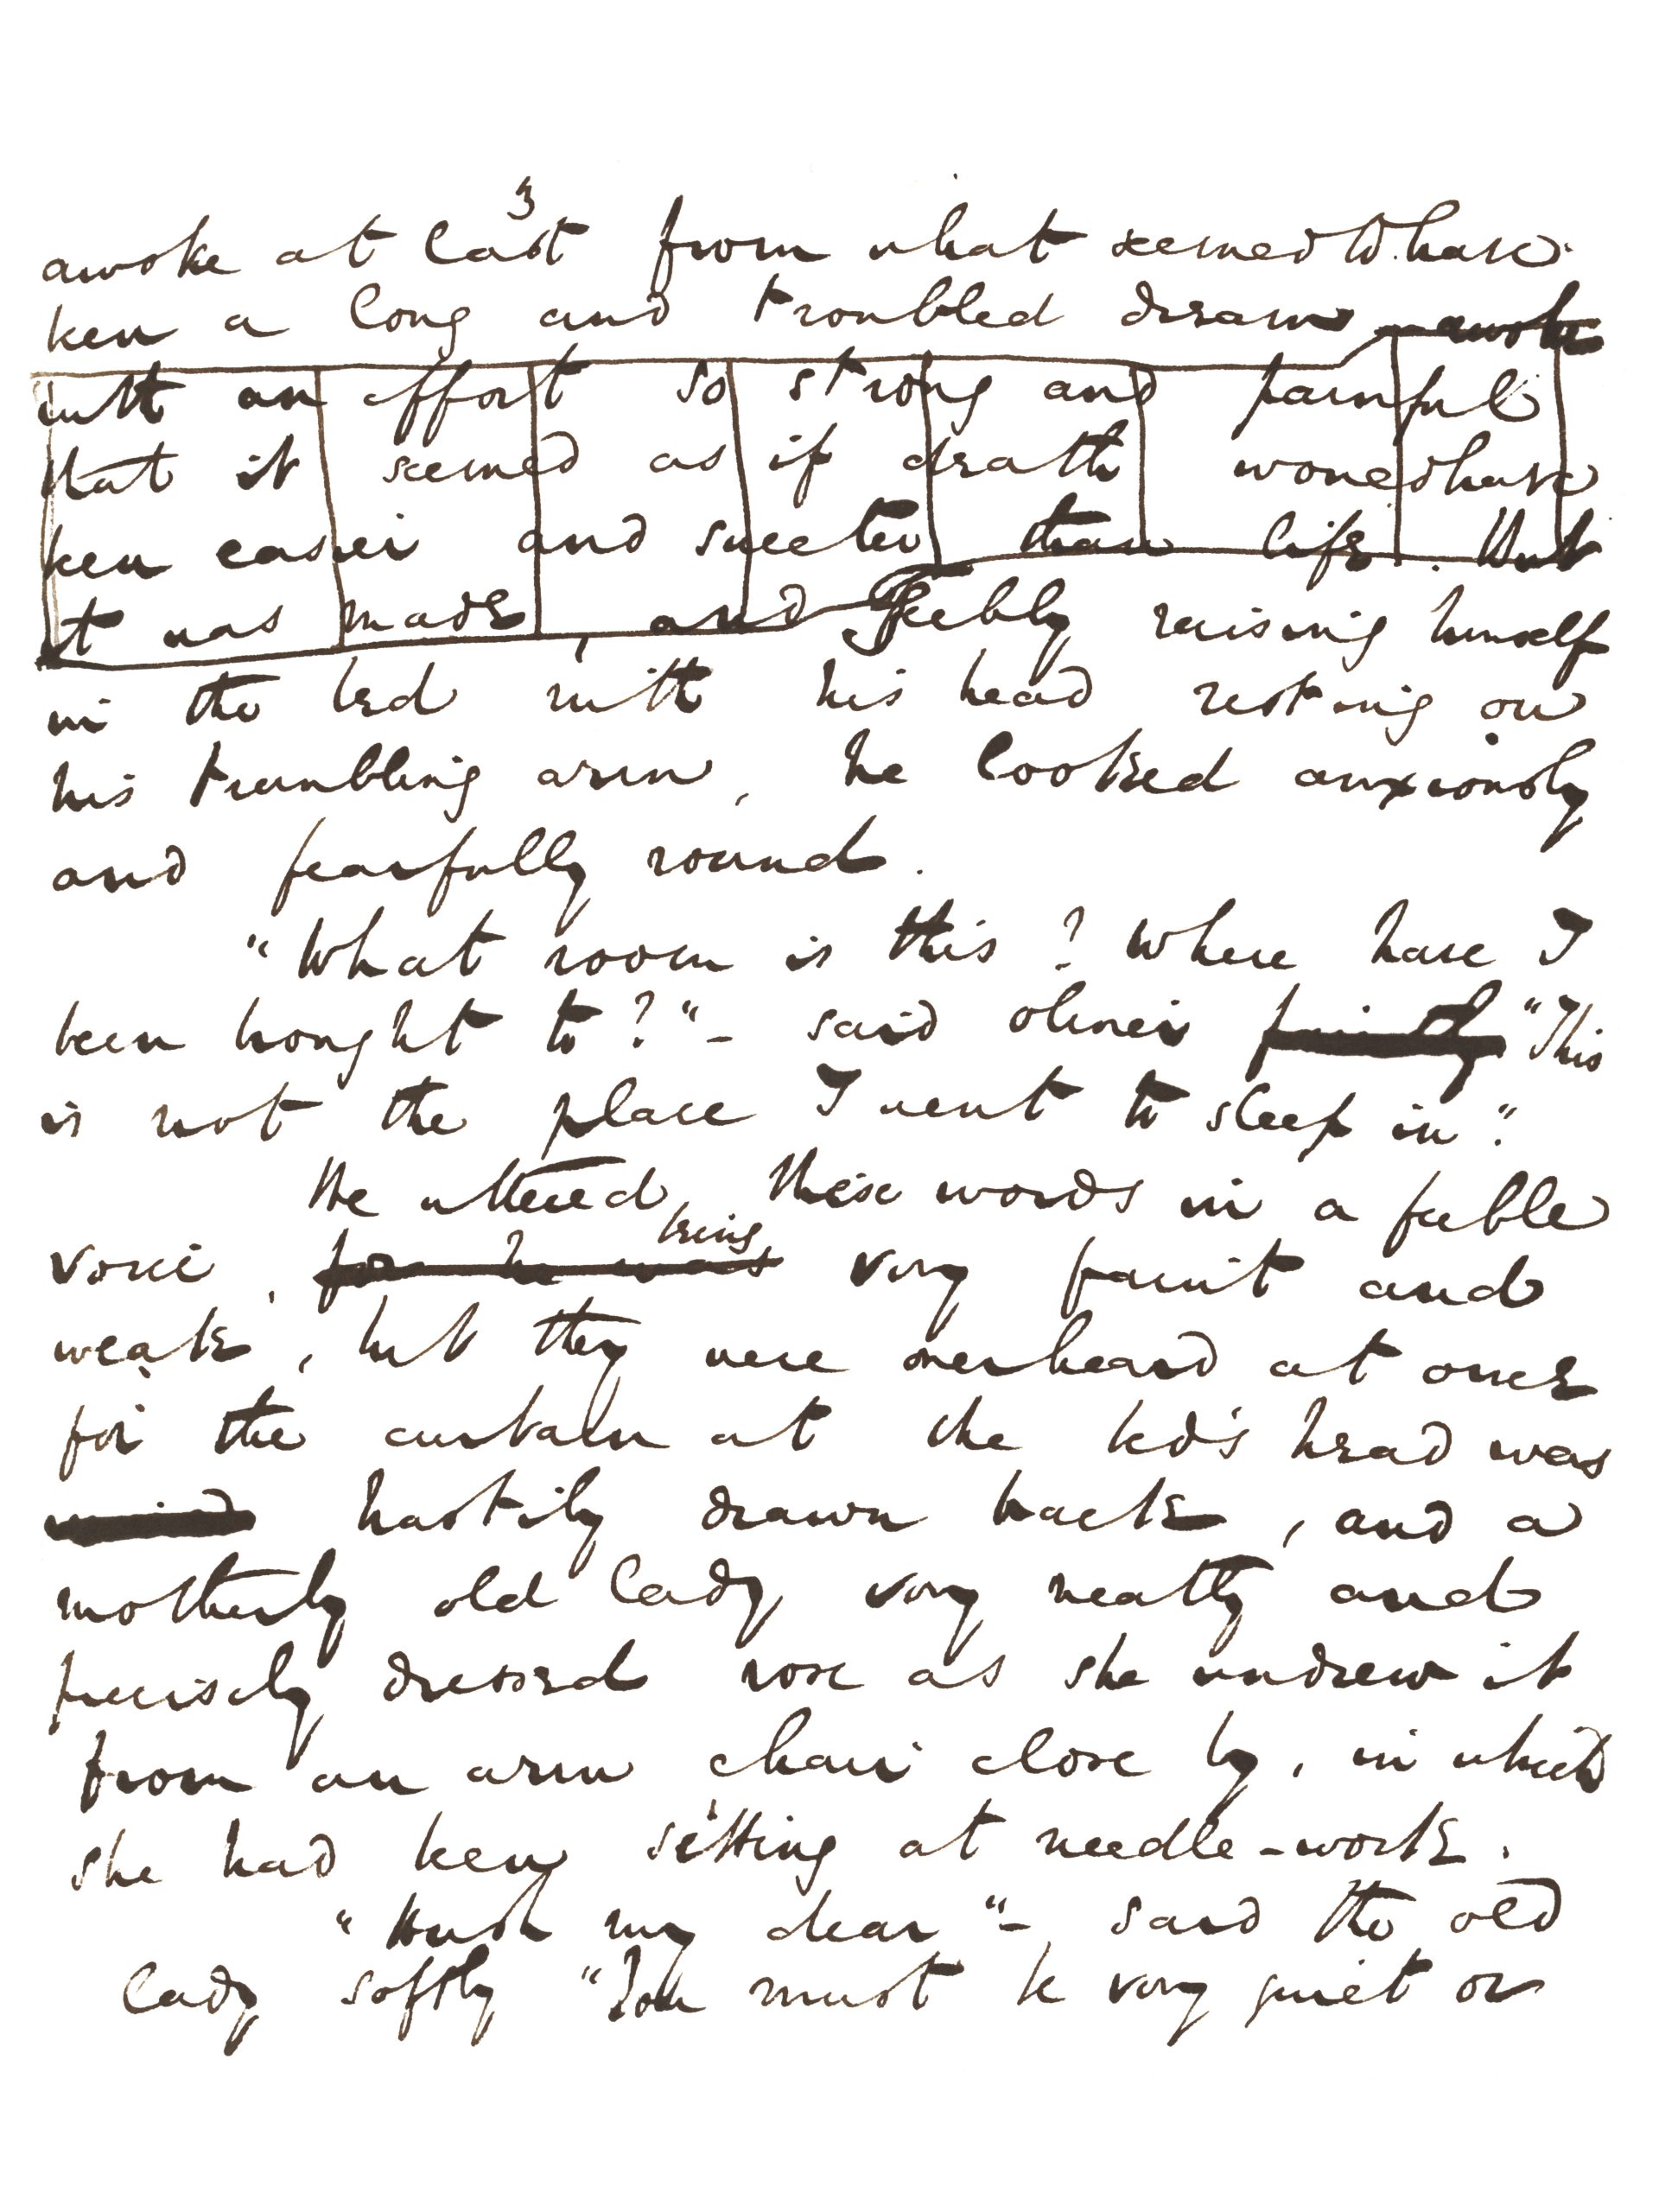 3
awoke at last from what seemed to have
been a long and troubled dream awoke
with an effort so strong and painful
that it seemed as if death would have
been easier and sweeter than life. But
it was made, and Feebly raising himself
in the bed with his head resting on
his trembling arm, he looked anxiously
and fearfully round.
"What room is this? Where have I
been brought to?"– said Oliver faintly "This
is not the place I went to sleep in".
He uttered these words in a feeble
being
voice, for he was very faint and
weak, but they were overheard at once
for the curtain at the bed's head was
hastily drawn back, and a
motherly old lady, very neatly and
precisely dressed rose as she undrew it
from an arm chair close by, in which
she had been sitting at needle-work.
"Hush my dear"– said the old
lady softly "You must be very quiet or